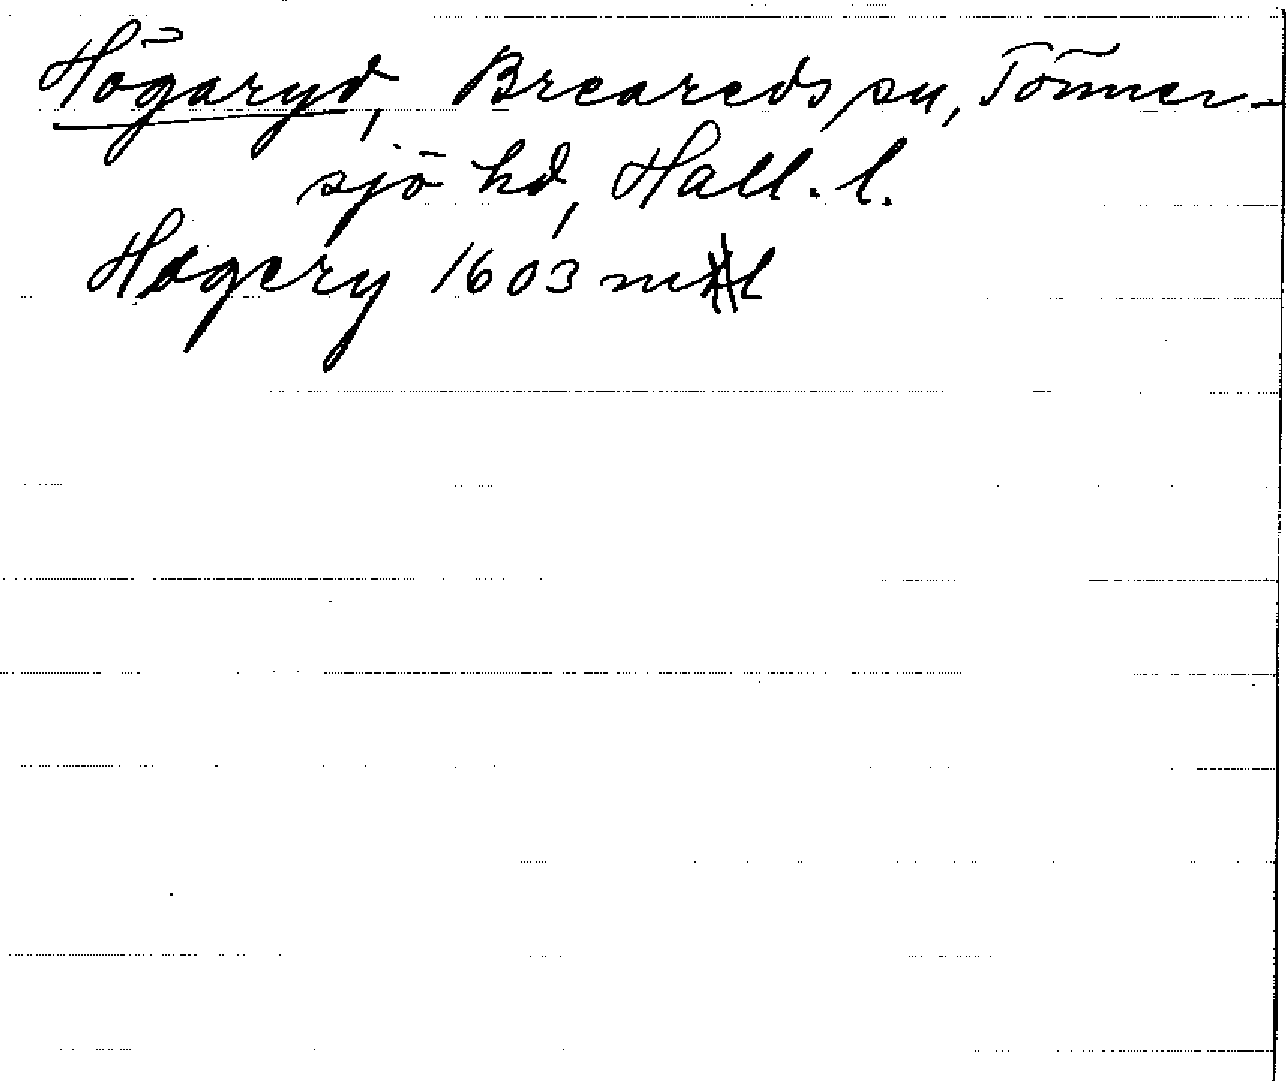 Högaryd, Breareds sn, Tönner-
sjö hd, Hall. l.
Høgery 1603